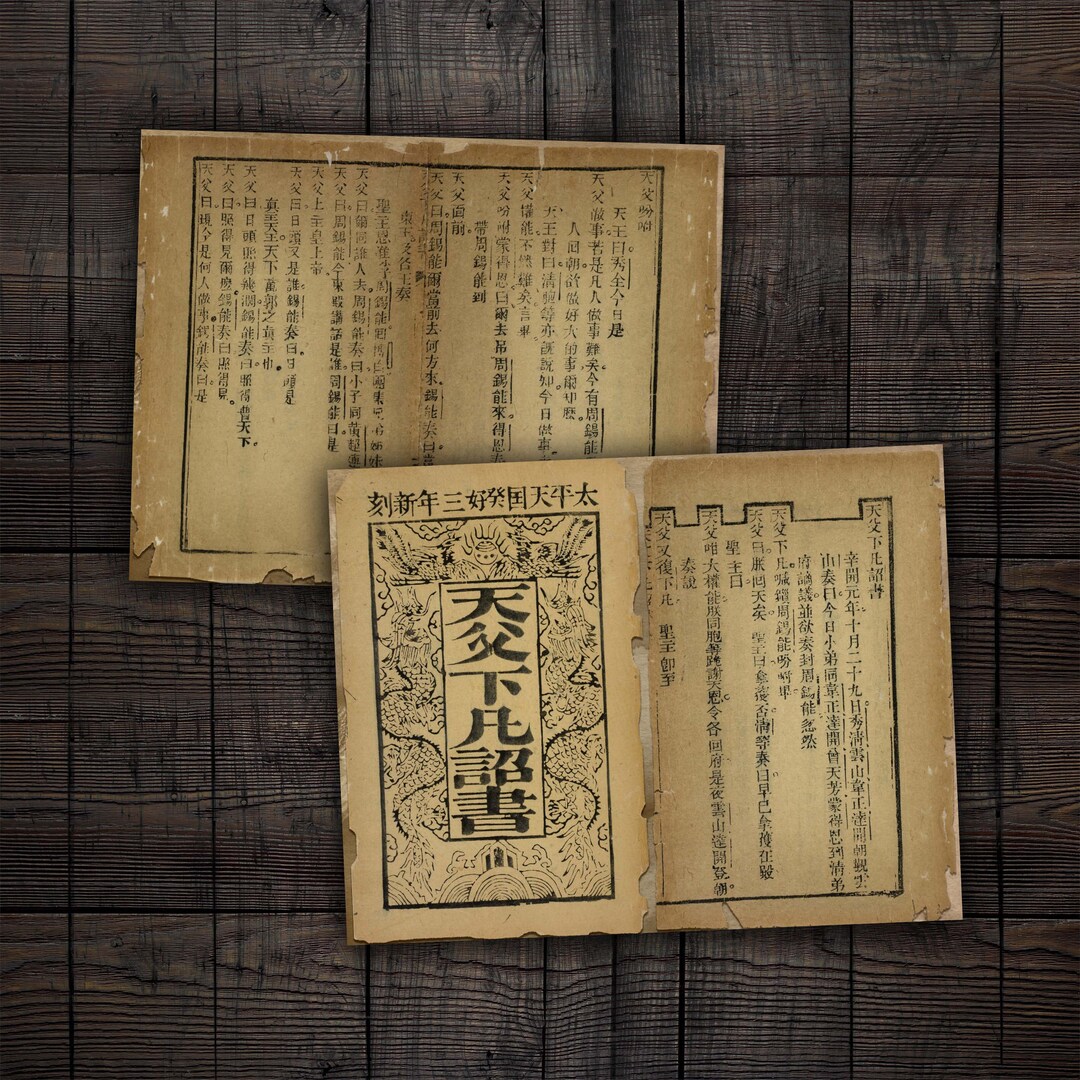 天父吩咐
天王曰秀全今日是
天父做事若是凡人做事難矣今有周錫能
人囘朝欲做好大的事爾知麽
天王對曰清胞等亦旣說知今日做事
天父權能不然難矣言畢
天父吩咐蒙得恩曰爾去吊周錫能來得恩奏
帶周錫能到
天父面前
天父曰周錫能爾當前去何方來錫能奏曰
奏
聖旨恩准周錫能囘
天父曰爾同誰人去周錫能奏曰小子同黃超連
天父曰周錫能今東賤講話是誰周錫能曰是
天父上主皇上帝
天父曰日頭又是誰錫能奏曰日頭是
真主天王天下萬郭之真主也
天父曰日頭照得幾濶錫能奏曰照得普天下
天父曰照得見爾麽錫能奏曰照得見
天父曰現今是何人做事錫能奏曰是
太平天囯癸好三年新刻
天父下凡詔書
天父下凡詔書
辛開元年十月二十九日秀清雲山韋正達開朝觀雲
山奏曰今日小弟同韋正達開曾天芳蒙得恩到清弟
府議並欲奏封周錫能忽然
天父下凡喊周錫能吩咐畢
天父曰朕囘天矣 聖主曰拿獲否清等奏曰早已拿獲在
聖主曰
天父咁大權能朕同胞等跪謝天恩令各囘府是夜雲山達開登朝
奏說
天父又復下凡 聖主卽至